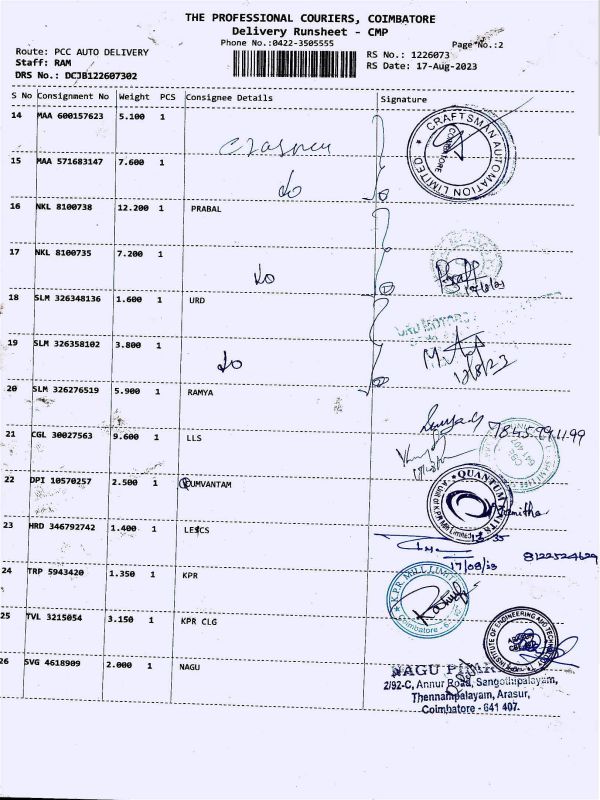 THE PROFESSIONAL COURIERS, COIMBATORE
Delivery Runsheet - CMP
Phone No.:0422-3505555
Page No.:2
Route: PCC AUTO DELIVERY
RS No.: 1226073
Staff: RAM
RS Date: 17-Aug-2023
DRS No.: DCJB122607302
S No Consignment No Weight PCS Consignee Details Signature
14 MAA 600157623 5.100 1
CRAFTSMAN AUTOMATION LIMITED
COIMBATORE
15 MAA 571683147 7.600 1
16 NKL 8100738 12.200 1 PRABAL
17 NKL 8100735 7.200 1
18 SLM 326348136 1.600 1 URD
URD MOTORS
19 SLM 326358102 3.800 1
20 SLM 326276519 5.900 1 RAMYA
21 CGL 30027563 9.600 1 LLS
641 407
22 DPI 10570257 2.500 1 KUMVANTAM
QUANTUM KNITS
23 HRD 346792742 1.400 1 LESCS
8122524629
17/08/23
24 TRP 5943420 1.350 1 KPR
K.P.R. MILL LIMITED
Coimbatore
25 TVL 3215054 3.150 1 KPR CLG
INSTITUTE OF ENGINEERING AND TECHNOLOGY
26 SVG 4618909 2.000 1 NAGU
NAGU
2/92-C, Annur Road, Sangothipalayam,
Thennampalayam, Arasur,
Coimbatore - 641 407.